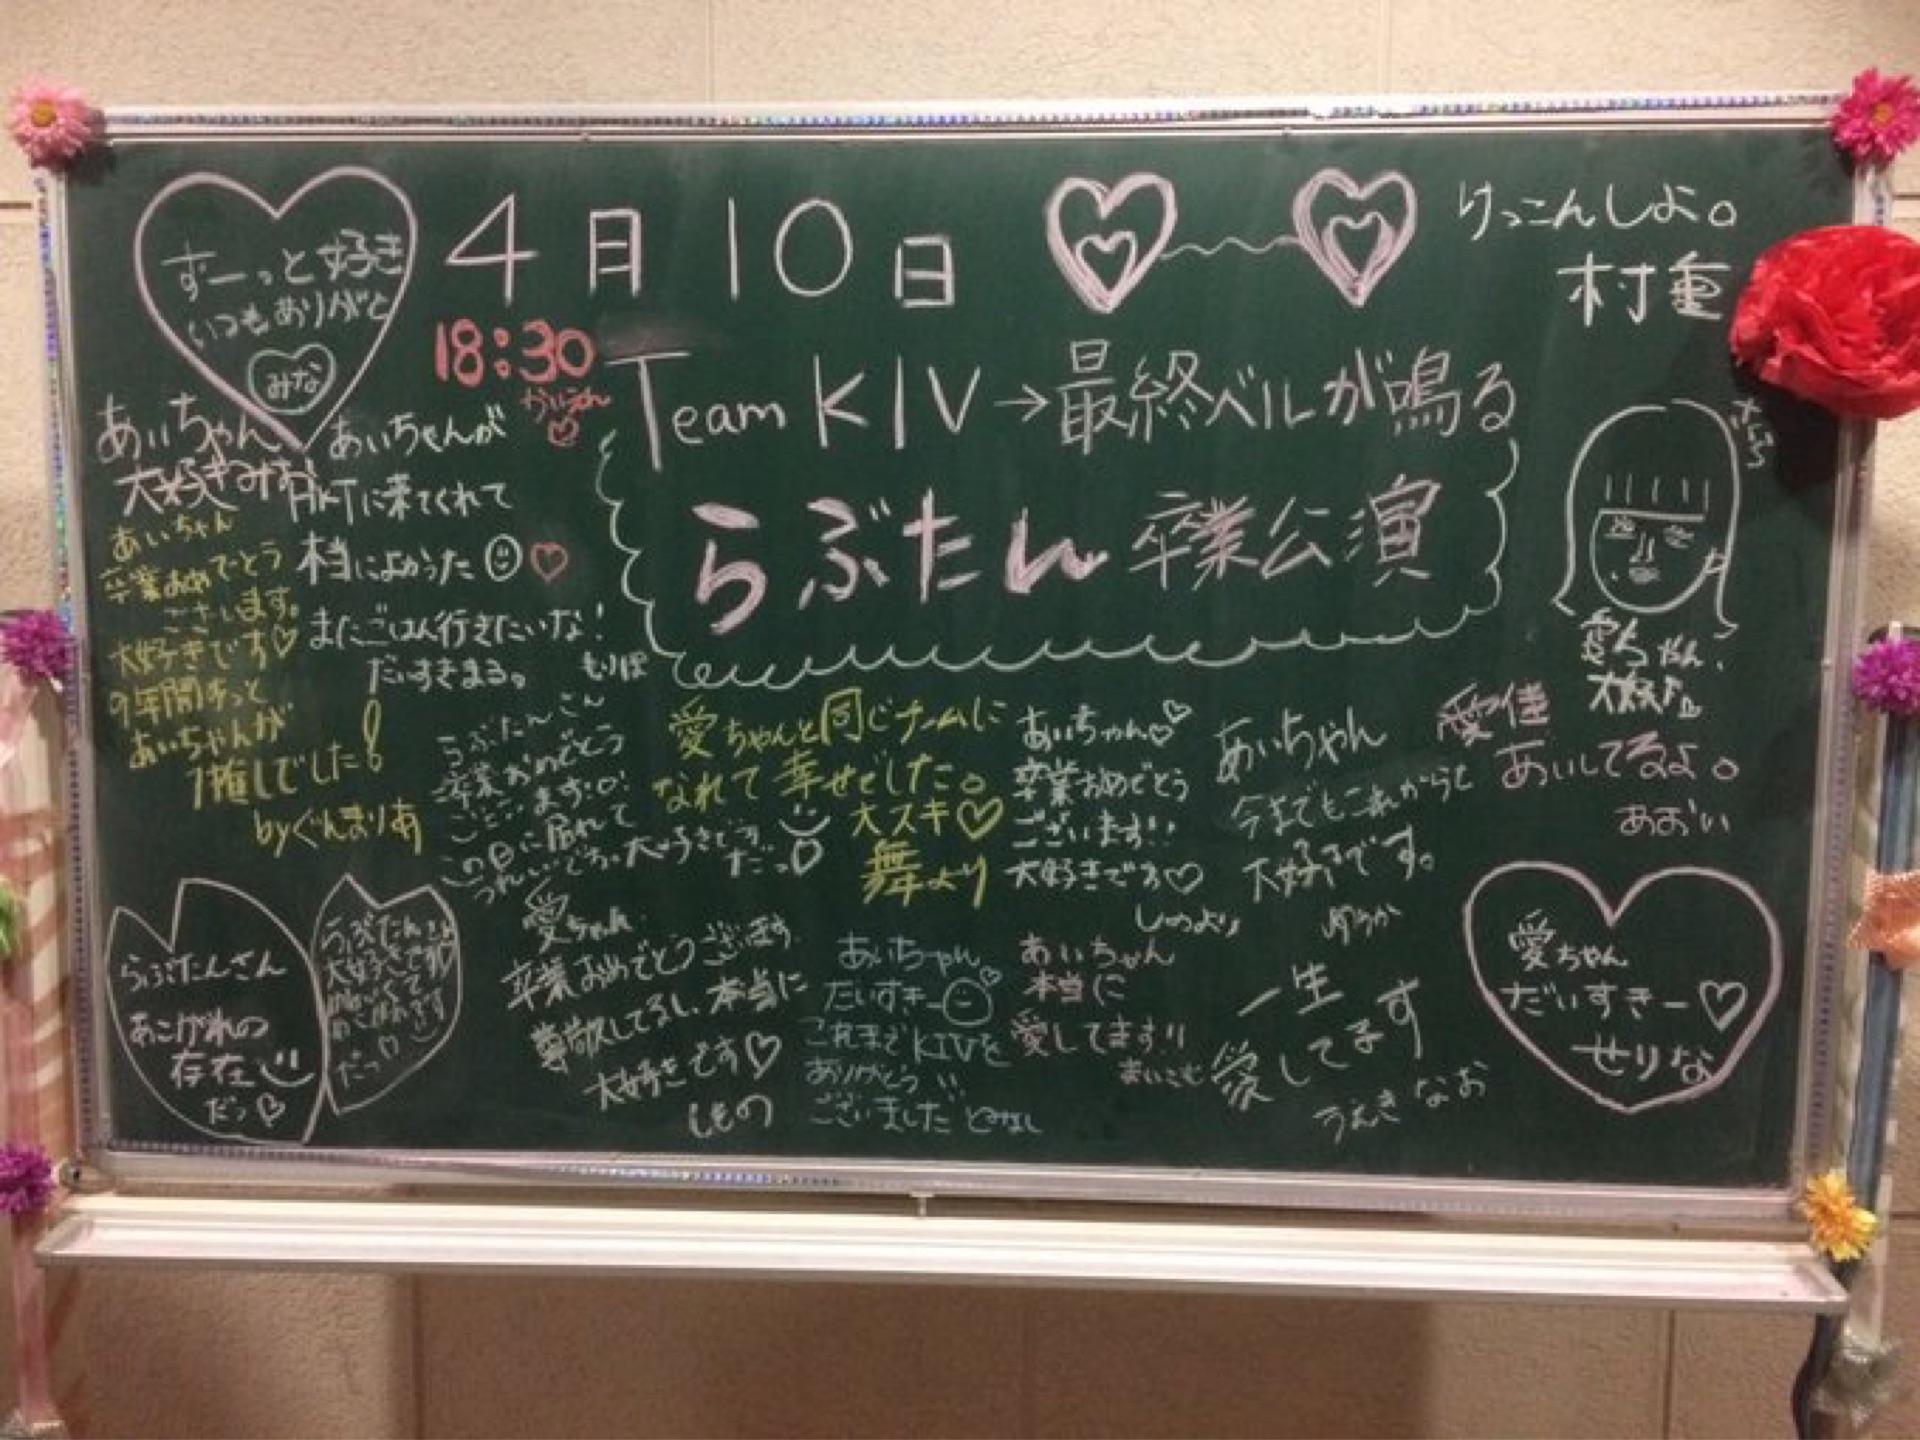 4月10日
18:30
かいえん
Team KIV→最終ベルが鳴る
らぶたん卒業公演
ずーっと好き
いつもありがと
みな
けっこんしよ。
村重
あいちゃん
大好き みお
あいちゃんが
HKTに来てくれて
本当によかった
またごはん行きたいな!
だいすきまる。
もりぽ
あいちゃん
卒業おめでとう
ございます。
大好きです♡
9年間ずっと
あいちゃんが
1推しでした!
byぐんまりあ
さくら
愛ちゃん、
大好き
愛佳
あいしてるよ。
あおい
らぶたんさん
卒業おめでとう
ございます
この日に居れて
うれしいです。大好きです
だっ
愛ちゃんと同じチームに
なれて幸せでした。
大スキ♡
舞より
あいちゃん♡
卒業おめでとう
ございます!!
大好きです♡
しのより
あいちゃん
今までもこれからも
大好きです。
ゆうか
らぶたんさん
あこがれの
存在
だっ♡
らぶたんさん
大好きです
だっ♡
愛ちゃん
卒業おめでとうございます
尊敬してるし、本当に
大好きです♡
しもの
あいちゃん
だいすきー
これまでKIVを
ありがとう
ございました
あいちゃん
本当に
愛してます!!
まいこむ
一生
愛してます
うえきなお
愛ちゃん
だいすきー♡
せりな